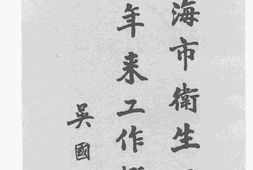 海市衛生
年来工作
吳國